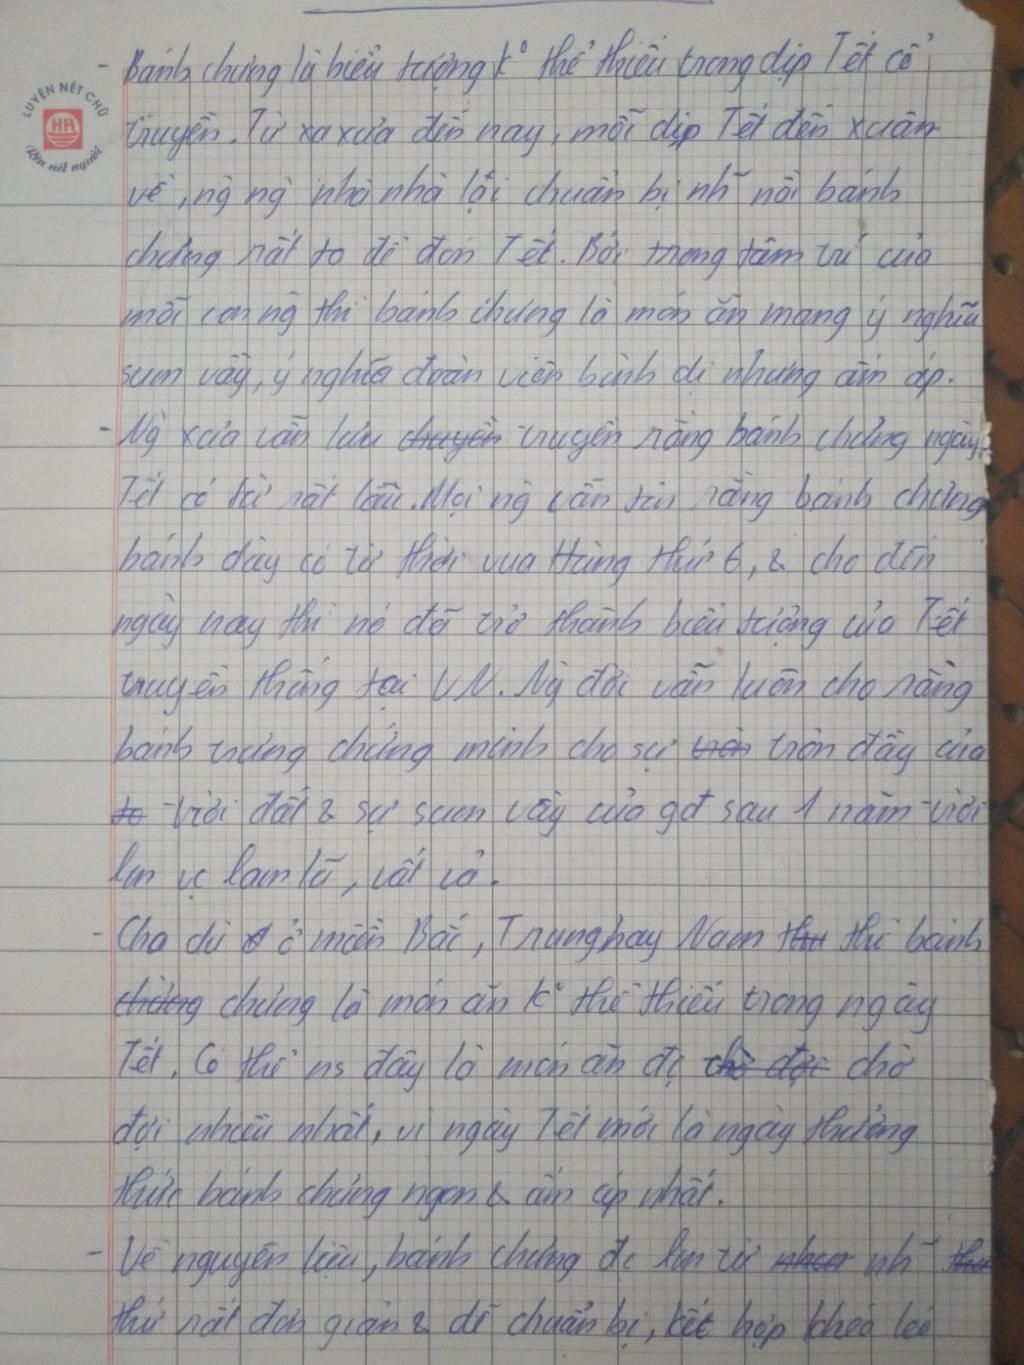 LUYỆN NẾT CHỮ
HA
Rèn nết người
- Bánh chưng là biểu tượng k° thể thiếu trong dịp Tết cổ
truyền. Từ xa xưa đến nay, mỗi dịp Tết đến xuân
về, ng ng nhà nhà lại chuẩn bị nh~ nồi bánh
chưng rất to để đón Tết. Bởi trong tâm trí của
mỗi con ng thì bánh chưng là món ăn mang ý nghĩa
sum vầy, ý nghĩa đoàn viên bình dị nhưng ấm áp.
- Ng xưa vẫn lưu chuyền truyền rằng bánh chưng ngày
Tết có từ rất lâu. Mọi ng vẫn tin rằng bánh chưng
bánh dày có từ thời vua Hùng thứ 6, & cho đến
ngày nay thì nó đã trở thành biểu tượng của Tết
truyền thống tại VN. Ng đời vẫn luôn cho rằng
bánh trưng chứng minh cho sự tròn tròn đầy của
to trời đất & sự sum vầy của gđ sau 1 năm trời
lm vc lam lũ, vất vả.
- Cho dù ở miền Bắc, Trung hay Nam thì bánh
chưng là món ăn k° thể thiếu trong ngày
Tết. Có thể ns đây là món ăn đc chờ đợi chờ
đợi nhiều nhất, vì ngày Tết mới là ngày thưởng
thức bánh chưng ngon & ấm áp nhất.
- Về nguyên liệu, bánh chưng đc lm từ nh~
thứ rất đơn giản & dễ chuẩn bị, kết hợp khéo léo